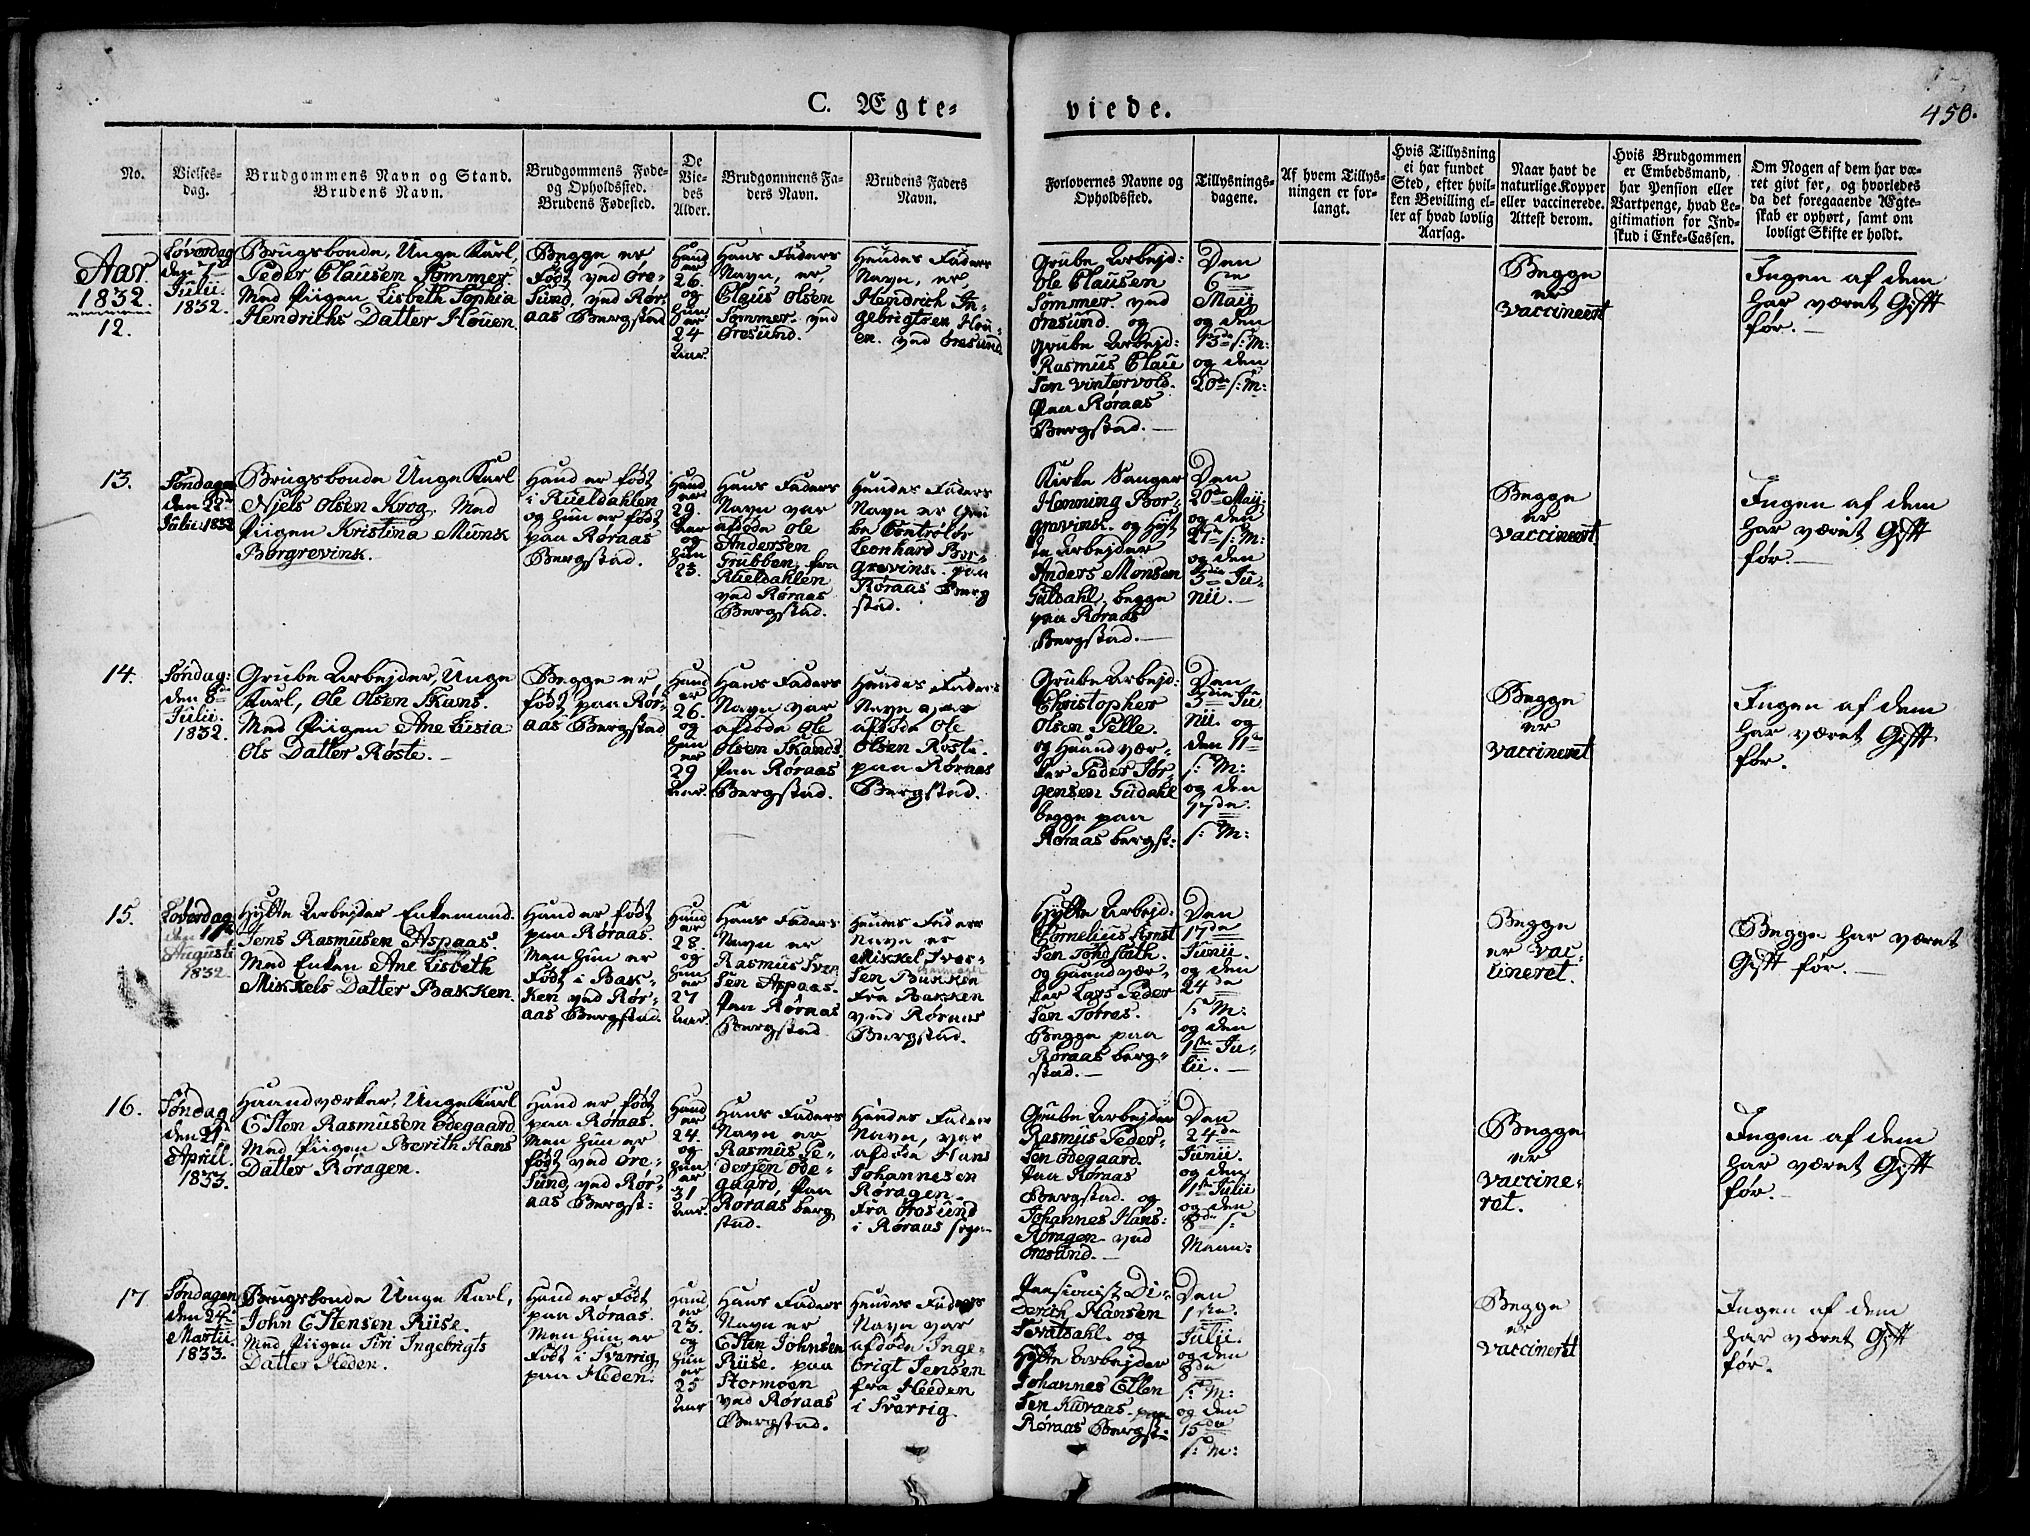 C. Ægte=
viede.
450.
No.
Vielses-
dag.
Brudgommens Navn og Stand.
Brudens Navn.
Brudgommens Føde-
og Opholdssted.
Brudens Fødested.
De
Vie-
des
Alder.
Brudgommens Fa-
ders Navn.
Brudens Faders
Navn.
Forlovernes Navne og
Opholdssted.
Tillysnings-
dagene.
Af hvem Tillys-
ningen er for-
langt.
Hvis Tillysning
ei har fundet
Sted, efter hvil-
ken Bevilling el-
ler af hvad lovlig
Aarsag.
Naar havt de
naturlige Kopper
eller vaccinerede.
Attest derom.
Hvis Brudgommen
er Embedsmand,
har Pension eller
Vartpenge, hvad Le-
gitimation for Ind-
skud i Enke-Cassen.
Om Nogen af dem har væ-
ret givt før, og hvorledes
da det foregaaende Ægte-
skab er ophørt, samt om
lovligt Skifte er holdt.
Aar
1832.
12.
Løverdag
den
Julii.
1832.
Brugsbonde, Unge Karl,
Peder Clausen Sommer.
Med Piigen Lisbeth Sophia
Hendrichs Datter Houen.
Begge er
født ved Øre-
Sund, ved Rør-
aas Bergstad
Hand
er
26.
og
hun
er
24
Aar.
Hans Faders
Navn, er
Claus Olsen
Sommer. ved
Øresund.
Hendes Faders
Navn, er
Hendrich In-
gebrigtsen Hou-
en. ved Øresund.
Grube Arbejd:
Ole Clausen
Sommer ved
Øresund og
Grube Arbejd:
Rasmus Clau
Sen Vintervold.
Paa Røraas
Bergstad.
Den
6te
Maij
og den
13de s: M:
og den
20de s: M:
Begge
er
vaccineret
Ingen af dem
har været Gifft
før.
13.
Søndagen
den 22de
Julii 1832
Brugsbonde Unge Karl
Niels Olsen Krog. Med
Piigen Kristina Munk
Borgrevink.
Hand er født
i Rueldahlen
og hun er født
paa Røraas
Bergstad.
Hand
er
29.
Aar
og
hun
23.
Hans Faders
Navn var
afdøde Ole
Andersen
Grubben, fra
Rueldahlen
ved Røraas
Bergstad.
Hendes Faders
Navn er Gru
be Controlør
Leonhard Bor-
grevink. paa
Røraas Berg
stad.
Kirke Sanger
Henning Bor-
grevink. og Hyt
te Arbejder
Anders Monsen
Guldahl, begge
paa Røraas
Bergstad.
Den
20de Maij
og den
27de s: M:
og den
3die Ju-
nii.
Begge
er
vaccineret
Ingen af dem
har været Gifft
før.
14.
Søndag:
den 8de
Julii.
1832.
Grube Arbejder, Unge
Karl, Ole Olsen Skans.
Med Piigen Ane Lisia
Ols Datter Røste.
Begge er,
født paa Rør-
aas Bergstad
Hand
er
26.
og
hun
er
29
Aar.
Hans Faders
Navn var
afdøde Ole
Olsen Skands.
Paa Røraas
Bergstad.
Hendes Faders
Navn var
afdøde Ole
Olsen Røste.
paa Røraas
Bergstad.
Grube Arbejd:
Christopher
Olsen Pelle.
og Haandvær-
ker Peder Jør-
gensen Gudahl
begge paa
Røraas bergst:
Den
3die Ju
nii. og
den 11te
s: M:
og den
17de.
s: M:
Begge
er
vaccineret
Ingen af dem
har været Gifft
før.
15.
Løverdag
den
Augusti
1832.
Hytte Arbejder Enkemand.
Jens Rasmusen Aspaas.
Med Enken Ane Lisbeth
Mikkels Datter Bakken.
Hand er født
paa Røraas.
Men hun er
født i Bak-
ken ved Rør-
aas Bergstad.
Hand
er
28.
og
hun
er
27
Aar.
Hans Faders
Navn er
Rasmus Iver
Sen Aspaas.
Paa Røraas
Bergstad.
Hendes Faders
Navn er
Mikkel Iver-
Sen Bakken
Fra Bakken
ved Røraas
Bergstad.
Hytte Arbejd:
Cornelius Ernst
Sen
og Haandvær-
ker Lars Peder
Sen Torres.
Begge paa
Røraas berg-
stad.
Den
17de
Junii.
og den
24de
s: M:
og den
1ste Ju-
lii.
Begge
er Vac-
cineret.
Begge har været
Gifft før.
16.
Søndag
den 21
April.
1833.
Haandværker, Unge Karl
Esten Rasmusen Ødegaard.
Med Piigen Berith Hans
Datter Røragen.
Hand er født
paa Røraas.
Men hun er
født ved Øre-
Sund, ved Rør-
aas Bergst:
Hand
er
24.
og
hun
er
31
Aar.
Hans Faders
Navn er
Rasmus Pe-
dersen Øde-
gaard, Paa
Røraas berg
stad.
Hendes Faders
Navn, var
afdøde Hans
Johannesen
Røragen.
Fra Øresund
i Røraas
Grube Arbejder
Rasmus Peder-
Sen Ødegaard.
Paa Røraas
Bergstad. og
Johannes Hans:
Røragen ved
Øresund.
Den
24de
Junii.
og den
1ste Julii
og den
8de s:
Maan:
Begge
er
vaccine-
ret.
Ingen af dem
har været Gifft
før.
17
Søndagen
den 24de
Martii
1833.
Brugsbonde Unge Karl,
John Estensen Riise.
Med Piigen Siri Ingebrigts
Datter Heden.
Hand er Født
paa Røraas.
Men hun er
Født i Sverrig
paa Heden.
Hand
er
23.
og
hun
er
25
Aar
Hans Faders
Navn er
Esten Johnsen
Riise. paa
Stormoen
ved Røraas
Bergstad.
Hendes Faders
Navn var
afdøde Inge-
brigt Jensen
fra Heeden
i Sverrig
Pensionist Di-
derich Hansen
Svatdahl. og
Hytte Arbejder
Johannes Ellen
Sen Kuraas. paa
Røraas Bergst:
Den
1ste.
Julii.
og den
8de
s: M:
og den
15de
s: M:
Begge
er
vaccineret
Ingen af dem
har været Gifft
før.